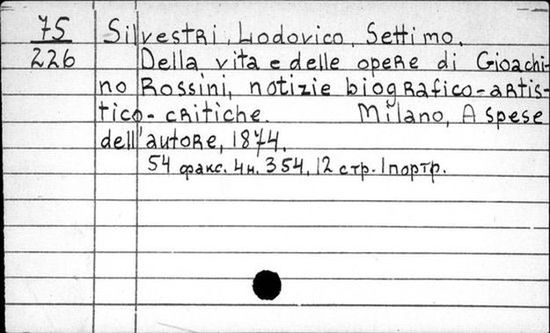 75 Silvestri, Lodovico, Settimo.
226 Della vita e delle opere di Gioachi-
no Rossini, notizie biografico-artis-
tico-critiche. Milano, A spese
dell'autore, 1874.
54 факс. 4н. 354, 12 стр. 1 портр.